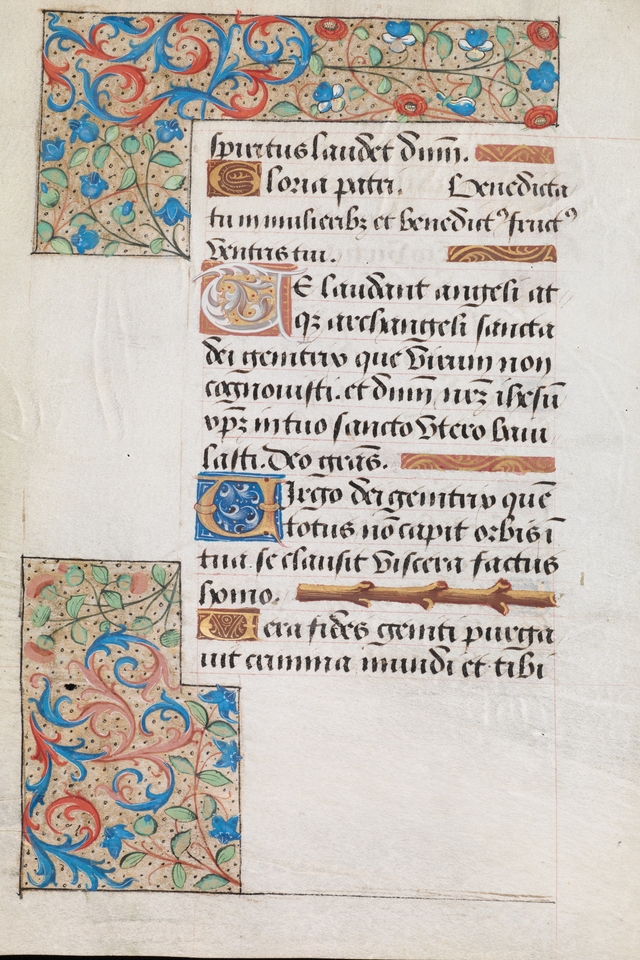 spiritus laudet dum̄.
Gloria patri. Benedicta
tu in mulieribꝫ et benedictꝰ fructꝰ
ventris tui.
TE laudant angeli at
qꝫ archangeli sancta
dei genitrix que virum non
cognouisti. et dum̄ nrꝫ ihesū
xp̄ꝫ in tuo sancto vtero baiu
lasti. Deo gras̄.
Uirgo dei genitrix quē
totus nō capit orbis ī
tua se clausit viscera factus
homo.
Vera fides geniti purga
uit crimina mundi et tibi